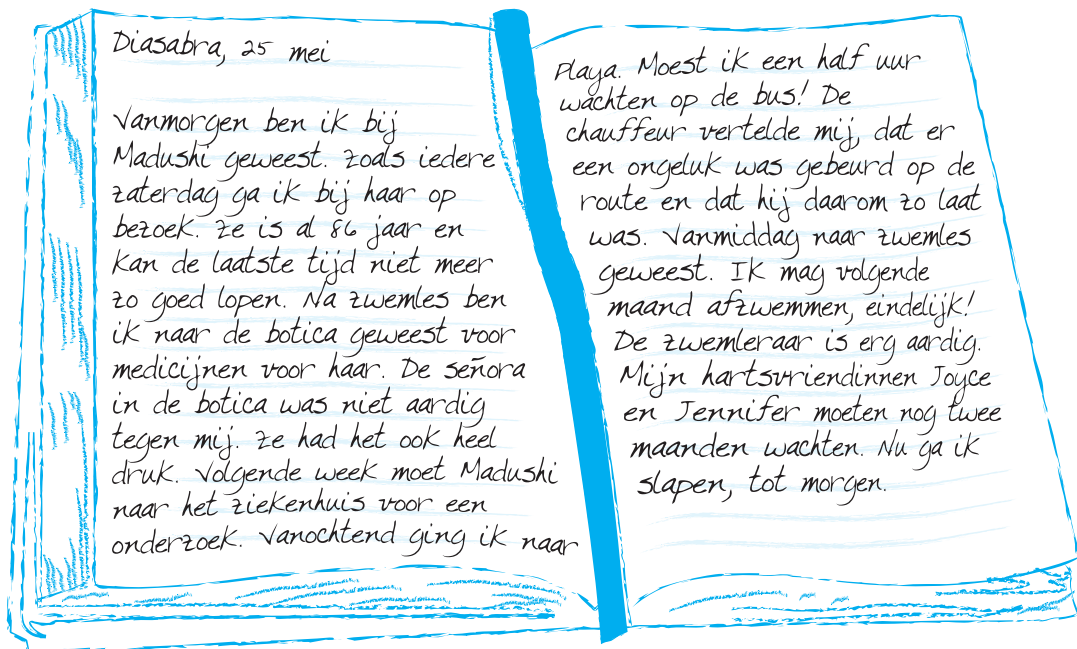 Diasabra, 25 mei
Vanmorgen ben ik bij
Madushi geweest. Zoals iedere
zaterdag ga ik bij haar op
bezoek. Ze is al 86 jaar en
kan de laatste tijd niet meer
zo goed lopen. Na zwemles ben
ik naar de botica geweest voor
medicijnen voor haar. De señora
in de botica was niet aardig
tegen mij. Ze had het ook heel
druk. Volgende week moet Madushi
naar het ziekenhuis voor een
onderzoek. Vanochtend ging ik naar
Playa. Moest ik een half uur
wachten op de bus! De
chauffeur vertelde mij, dat er
een ongeluk was gebeurd op de
route en dat hij daarom zo laat
was. Vanmiddag naar zwemles
geweest. Ik mag volgende
maand afzwemmen, eindelijk!
De zwemleraar is erg aardig.
Mijn hartsvriendinnen Joyce
en Jennifer moeten nog twee
maanden wachten. Nu ga ik
slapen, tot morgen.